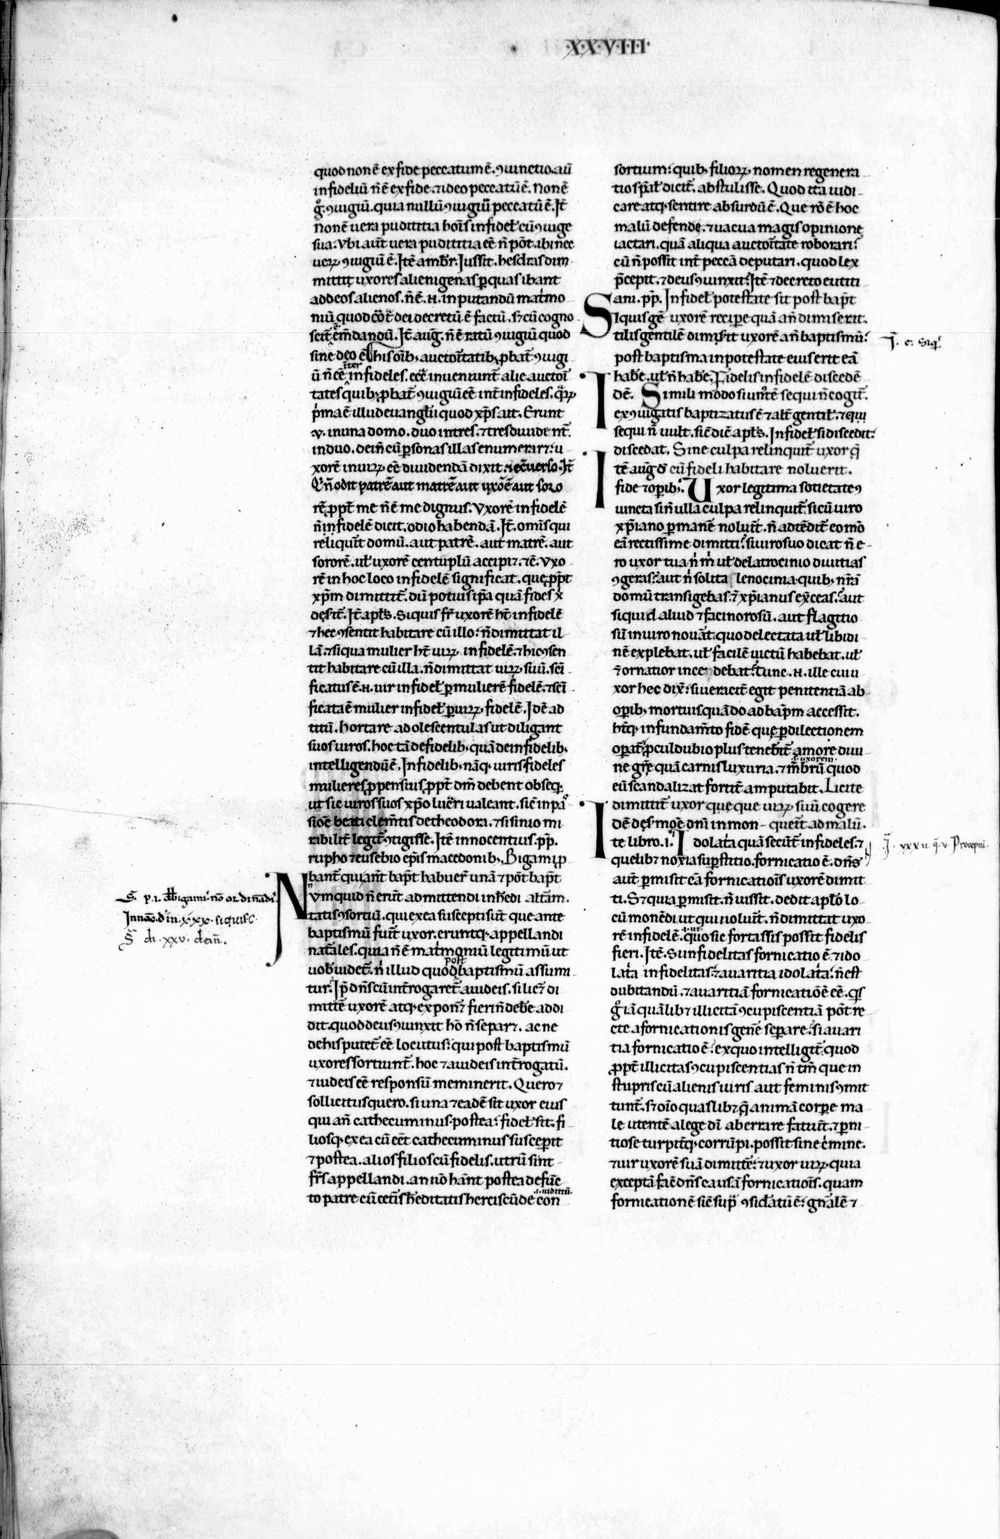 ·X·X·V·III·
quod non ē ex fide peccatum ē. ꝯiunctio aū
infideliū ñ ē ex fide. ⁊ ideo peccatū ē. Non ē
g̊. ꝯiugiū. quia nullū ꝯiugiū peccatū ē. Jt̄
non ē uera pudititia hoīs infidel̄ cū ꝯiuge
sua: Vbi aūt uera pudititia eē ñ pōt. ibi nec
ueꝝ ꝯiugiū ē. Jtē ambr̄. Jussit. hesdras dim
mittit uxores alienigenas ꝑ quas ibant
ad deos alienos. ñ ē. n. inputandū mat͛mo
niū quod
sine deo ē his oīb; auctoritatib; ꝓbat͛ ꝯiugi
infideles. ecc̄ inueniunt͛ alie auctori
tates quib; ꝓbat͛ ꝯiugiū eē int͛ infideles. q̄ꝝ
p͛ma ē illud euangl̄ii quod xp̄s ait. Erunt
.v. in una domo. duo in tres. ⁊ tres diuident͛
in duo. dein̄ cū ꝑsonas illas enumerar&. u
xorē in uiꝝ eē diuidendā dixit. ⁊ ec̄uerso. Jt̄
Qi ñ odit patrē aut matrē aut uxorē aut soro
rē ꝓpt̄ me ñ ē me dignus. Vxorē infidelē
ñ infidelē dicit odio habendā. Jt̄. omīs qui
reliquit domū. aut patrē. aut matrē. aut
sororē. ul̄ uxorē centuplū accipi&. ⁊c̄. Vxo
rē in hoc loco infidelē significat. que ꝓpt̄
xp̄m dimittit͛. dū potius ip̄a quā fides x̄
deserit͛. Jt̄ apl̄s. Siquis fr̄ uxorē ht̄ infidelē
⁊ hec ꝯsentit habitare cū illo: ñ dimittat il
lā. ⁊ siqua mulier ht̄ uiꝝ infidelē. ⁊ hic ꝯsen
tit habitare cū illa. ñ dimittat uiꝝ suū. sc̄i
ficatus ē. n. uir infidel̄ ꝑ mulierē fidelē. ⁊ sc̄i
ficata ē mulier infidel̄ ꝑ uiꝝ fidelē. Jdē ad
titū. hortare adolescentulas ut diligant
suos uiros. hoc tā de fidelib; quā de infidelib;
intelligendū ē. Infidelib; nāq; uiris fideles
mulieres ꝓpensius ꝓpt̄ dm̄ debent obseq.
ut sic uiros suos xp̄o luc̄ri ualeant. sic̄ in pā
sioē beati clem̄tis de theodora. ⁊ sisinio mi
rabilit͛ legit͛ ꝯtigisse. Jtē innocentius .pp̄.
rupho ⁊ eusebio ep̄is macedonib; Bigami ꝓ
bant͛ qui añt bapt̄ habuer̄ unā ⁊ pōt bapt̄
Numquid ñ erūt admittendi in h̄edi altam̄.
tatis ꝯsortiū. qui ex ea suscepti sūt que ante
baptismū fuit͛ uxor. eruntq; appellandi
natales. quia ñ ē mat͛moniū legitimū ut
uob uidet͛. n̄ illud quod post baptismū assumi
tur. Jp̄ dn̄s cū int͛rogaret͛ a iudeis. si lic& di
mitt͛e uxorē atq; expon& fieri ñ debe addi
dit. quod deus ꝯiunxit hō ñ separ&. ac ne
de his putet͛ eē locutus: qui post baptismū
uxores sortiunt͛. hoc ⁊ a iudeis int͛rogatū.
⁊ iudeis eē responsū meminerit. Quero ⁊
sollicitus quero. si una ⁊ eadē sit uxor eius
qui añ cathecuminus. postea: fidel̄ sit. fi
liosq; ex ea cū eēt cathecuminus susceꝑit
⁊ postea. alios filios cū fidelis. utrū sint
frēs appellandi. an nō hānt postea defūc
to patre cū eūs h͛editatis herciscūde con
sortium: quib; filioꝝ nomen regenera
tio sp̄al̄ dicit͛. abstulisse. Quod ita iudi
care atq; sentire absurdū ē. Que rō ē hoc
malū defende. ⁊ uacua magis opinione
iactari. quā aliqua auctoritate roborari:
cū ñ possit int̄ peccā deputari. quod lex
p̄cepit. ⁊ deus ꝯiunxit: Jtē ⁊ decreto eutiti
ani .pp̄. Infidel̄ potestate sit post bapt̄
Siquis gē uxorē reciꝑe quā añ dimiserit.
tilis gentilē dimisit uxorē añ baptismū:
post baptisma in potestate eius erit eā
habē. ul̄ ñ habē. Fidelis infidelē discedē
dē. Simili modo si unꝰ ē sequi ñ cogit͛.
ex ꝯiugatis baptizatus ē ⁊ alt͛ gentil̄. ⁊ qui
sequi ñ uult. sic̄ dic̄ apl̄s. Infidel̄ si discedit:
discedat. Sine culpa relinquit͛ uxor q̄
tē aug̊ cū fideli habitare noluerit.
fide ⁊ oꝑib;. Uxor legitima societate ꝯ
iuncta siñ ulla culpa relinquit͛. si cū uiro
xp̄iano ꝑmanē noluit. ñ adtēdit͛ eo mō
eā rectissime dimitti. si uiro suo dicat ñ e
ro uxor tua ñ m̄ ul̄ de latrocinio diuitias
ꝯgeras: aut ñ solita lenocinia. quib; nr̄ā
domū transigebas. ⁊ xp̄ianus exerceas. aut
siquid aliud ⁊ facinorosū. aut flagitio
sū in uiro nouat. quo delectata ul̄ libidi
nē explebat. ul̄ facilē uictū habebat. ul̄
⁊ ornatior incedebat. Tunc .n. ille cui u
xor hec dix̄: si ueracit͛ egit penitentiā ab
oꝑib; mortuis quādo ad bap̄m accessit.
htq; in fundam̄to fidē que ꝑ dilectionem
oꝑat͛. ꝓculdubio plus tenebit͛ amore diui
ne gr̄e quā carnis luxuria. ⁊ mēbrū quod
eū scandalizat fortit͛ amputabit. Licite
dimittit͛ uxor que uiꝝ suū cogere
querit ad malū.
te libro .i. Idolatria quā secūt͛ infideles. ⁊
quelib& noxia suꝑstitio. fornicatio ē. dn̄s
aūt ꝑmisit cā fornicatiōis uxorē dimit
ti. S; ⁊ quia ꝑmisit. ñ iussit. dedit apl̄o lo
cū monēdi. ut qui noluit. ñ dimittat uxo
rē infidelē. quo sic fortassis possit fidelis
fieri. Jtē. Si infidelitas fornicatio ē. ⁊ ido
latria infidelitas. ⁊ auaritia idolatria. ñ est
dubitandū. ⁊ auaritiā fornicatiōē eē. q̄s
g̊ iā quālib& illicitā ꝯcupiscentiā pōt re
cte a fornicationis gene separe. si auari
tia fornicatio ē. ex quo intelligit͛. quod
ꝓpt̄ illicitas ꝯcupiscentias ñ tm̄ que in
stupris cū alienis uiris. aut feminis ꝯmit
tunt͛. s; oīo quaslib& q̄ animā corꝑe ma
le utentē a lege dī aberrare faciūt. ⁊ ꝑni
tiose turpitq; corrūpi. possit sine c͛mine.
⁊ uir uxorē suā dimitt͛e. ⁊ uxor uiꝝ. quia
exceptā fac̄ dn̄s causā fornicatiōis. quam
fornicationē sic̄ sup̄ ꝯsidatū ē. gnalē ⁊